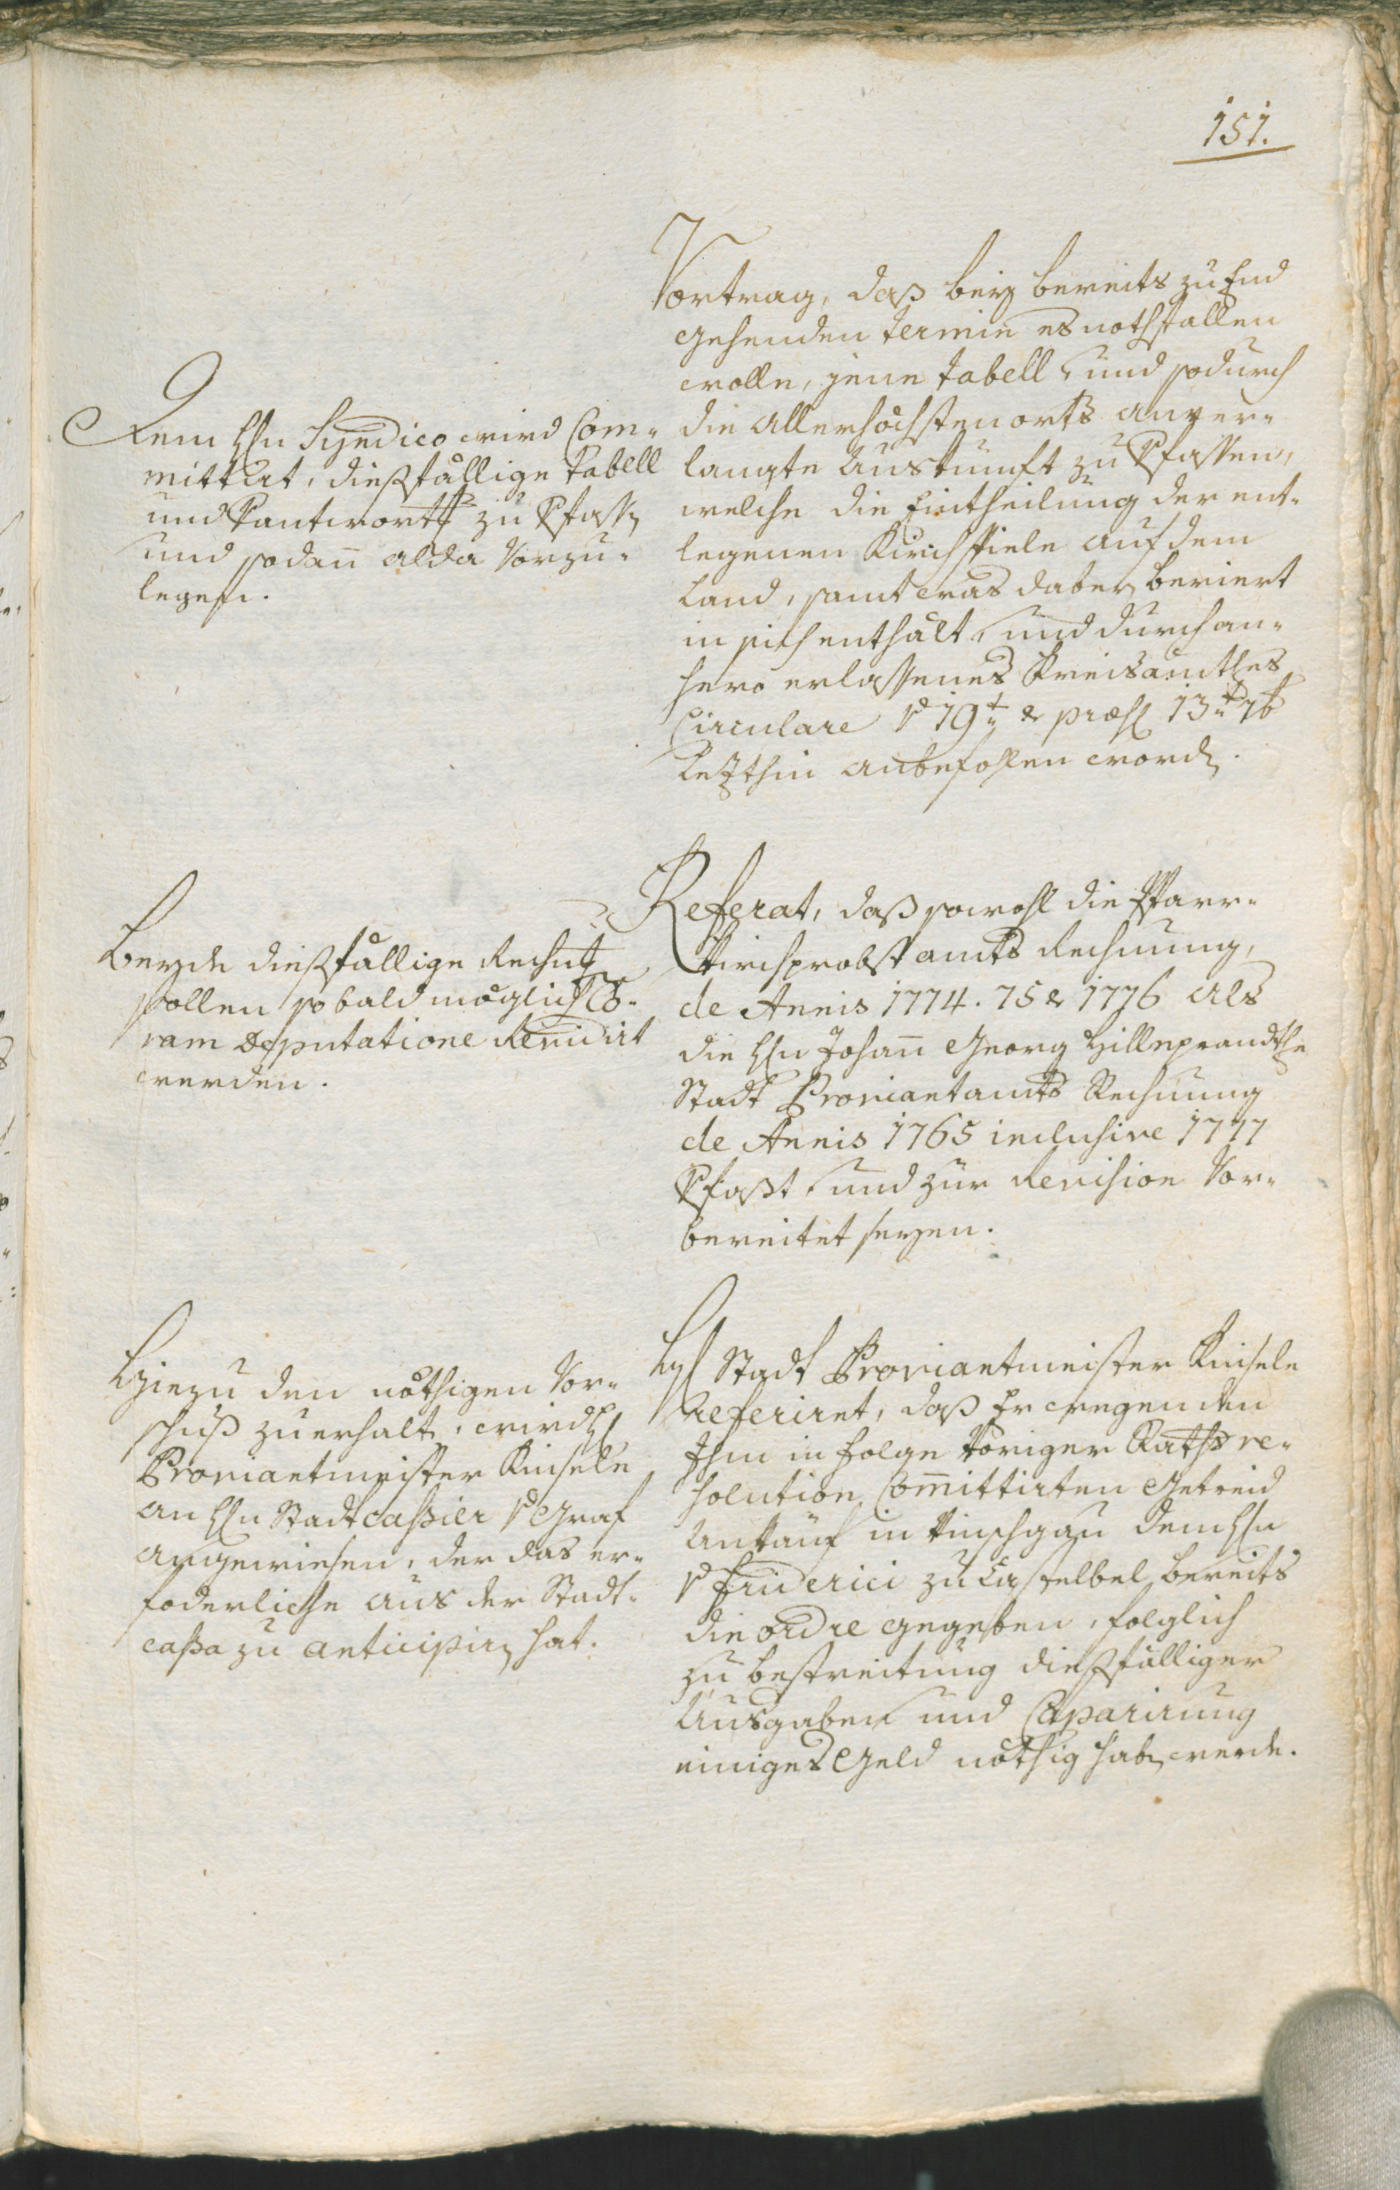 151.
Vortrag, daß beÿ bereits zu End
gehenden Termin es nothfallen
wolle, jene Tabell und so durch
die Allerhöchsten orts anver-
langte Auskunft zu Vfassen,
welche die Eintheilung der ent-
legenen Kirchspiele auf dem
Land, samt was dabeÿ beriert
in sich enthält, und durch an-
hero erlassenes Kreisamtles
Circulare v 19t & præs 13ten 7b
letzthin anbefohlen word.
Dem Hln Sÿndico wird Com-
mittirt, dießfällige Tabell
und Vantwortg zu Vfassen
und sodan̄ alda Vorzu-
legen.
Referat, daß sowohl die Pfarr-
kirchprobst amts Rechnung,
de Annis 1774. 75 & 1776 als
die Hln Johan̄ Georg Hilleprandtle
Stadt Proviantamts Rechnung
de Annis 1765 inclusive 1777
Vfaßt und zur Revision Vor-
bereitet seÿen.
Beyde dießfällige Rechng
sollen so bald möglich Co-
ram Deputatione Revidirt
werden.
Hl Stadt Proviantmeister Kinsele
referiret, daß Er wegen den
Ihm in folge Voriger Raths re-
solution Com̄ittirten Getreid
Ankauf in Vinschgau dem Hln
v Friderici zu Castelbel bereits
die ordre gegeben, folglich
zu bestreitung dießfälliger
Ausgaben und Caparirung
einiges Geld nöthig hab werde.
Hiezu den nöthigen Vor-
schuß zu erhalt, wird Hl
Proviantmeister Kinsele
an Hln Stadtcaßier v Graf
angewiesen, der das er-
foderliche aus der Stadt-
caßa zu anticipirn hat.